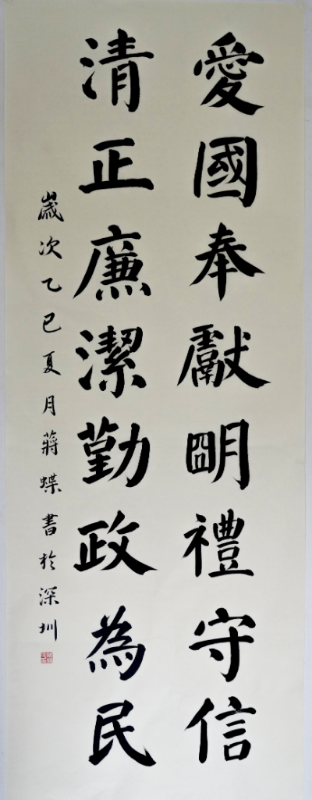 愛國奉獻明禮守信
清正廉潔勤政為民
歲次乙巳夏月蔣蝶書於深圳